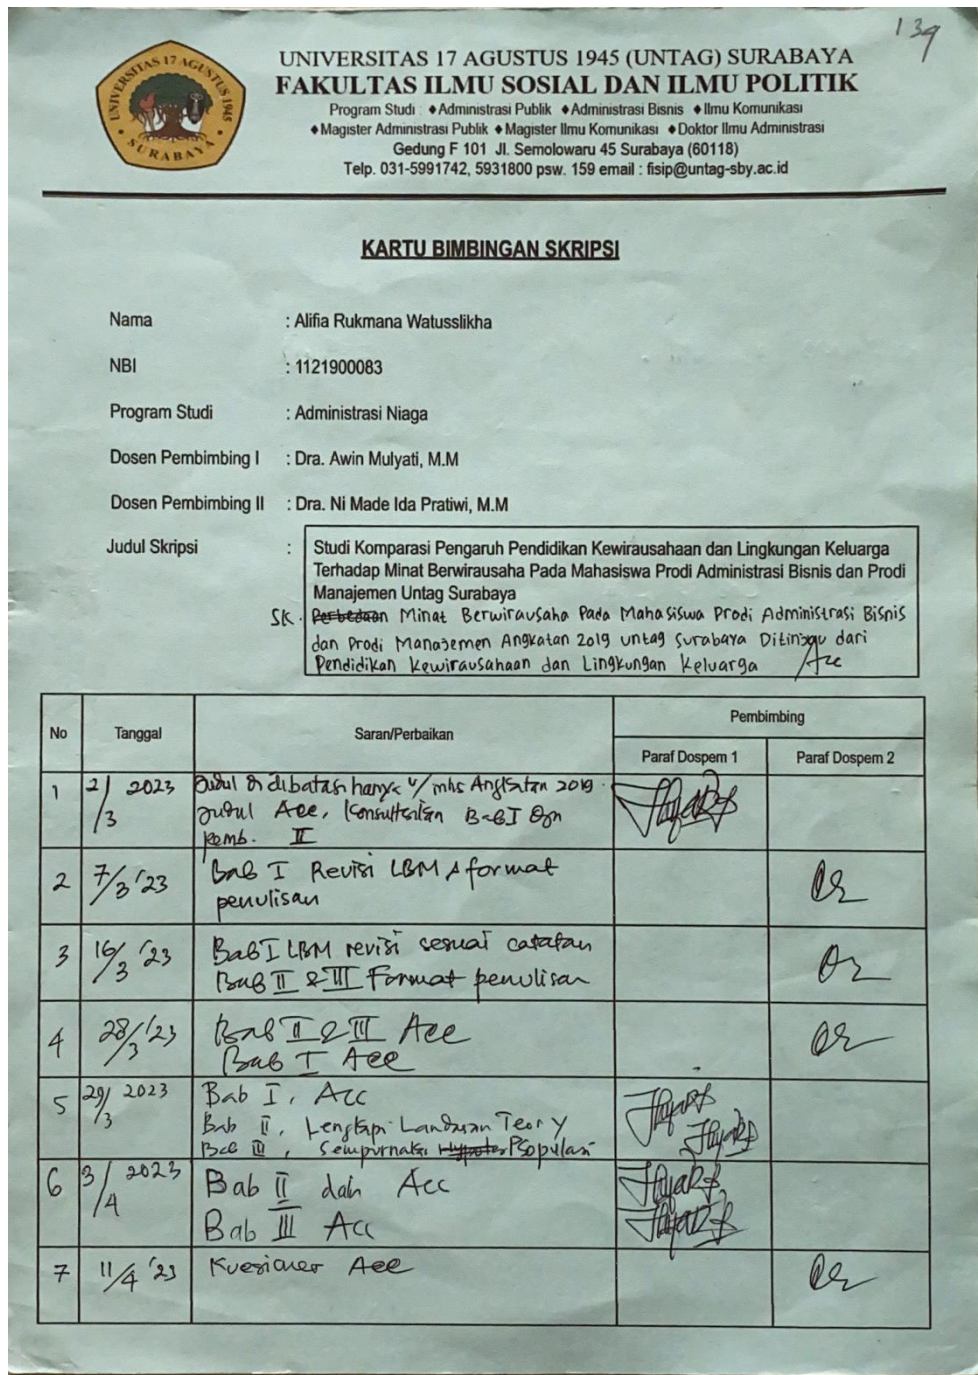 139
UNIVERSITAS 17 AGUSTUS 1945
SURABAYA
UNIVERSITAS 17 AGUSTUS 1945 (UNTAG) SURABAYA
FAKULTAS ILMU SOSIAL DAN ILMU POLITIK
Program Studi : ♦Administrasi Publik ♦Administrasi Bisnis ♦Ilmu Komunikasi
♦Magister Administrasi Publik ♦Magister Ilmu Komunikasi ♦Doktor Ilmu Administrasi
Gedung F 101 Jl. Semolowaru 45 Surabaya (60118)
Telp. 031-5991742, 5931800 psw. 159 email : fisip@untag-sby.ac.id
KARTU BIMBINGAN SKRIPSI
Nama : Alifia Rukmana Watusslikha
NBI : 1121900083
Program Studi : Administrasi Niaga
Dosen Pembimbing I : Dra. Awin Mulyati, M.M
Dosen Pembimbing II : Dra. Ni Made Ida Pratiwi, M.M
Judul Skripsi : Studi Komparasi Pengaruh Pendidikan Kewirausahaan dan Lingkungan Keluarga
Terhadap Minat Berwirausaha Pada Mahasiswa Prodi Administrasi Bisnis dan Prodi
Manajemen Untag Surabaya
SK. Perbedaan Minat Berwirausaha Pada Mahasiswa Prodi Administrasi Bisnis
dan Prodi Manajemen Angkatan 2019 untag Surabaya Ditinjau dari
Pendidikan Kewirausahaan dan Lingkungan Keluarga Acc
No Tanggal Saran/Perbaikan Pembimbing
Paraf Dospem 1 Paraf Dospem 2
1 2/3 2023 Judul di dibatasi hanya u/ mhs Angkatan 2019.
Judul Acc, Konsultasikan Bab I Dgn
Pemb. II
2 7/3 '23 Bab I Revisi LBM & format
penulisan
3 16/3 '23 Bab I LBM revisi sesuai catatan
Bab II & III Format penulisan
4 28/3 '23 Bab II & III Acc
Bab I Acc
5 29/3 2023 Bab I, Acc
Bab II, Lengkapi Landasan Teory
Bab III, Sempurnakan Populasi
6 3/4 2023 Bab II dan Acc
Bab III Acc
7 11/4 '23 Kuesioner Acc